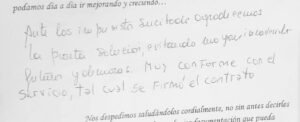 podamos día a día ir mejorando y creciendo…
Ante los imprevistos suscitados agradecemos
la pronta solución, evitando mayores
y demoras. Muy conforme con el
servicio, tal cual se firmó el contrato
Nos despedimos saludándolos cordialmente, no sin antes decirles
que pueda